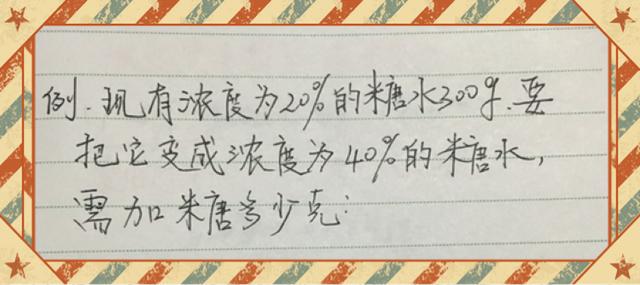 例.现有浓度为20%的糖水300g.要
把它变成浓度为40%的糖水,
需加糖多少克: